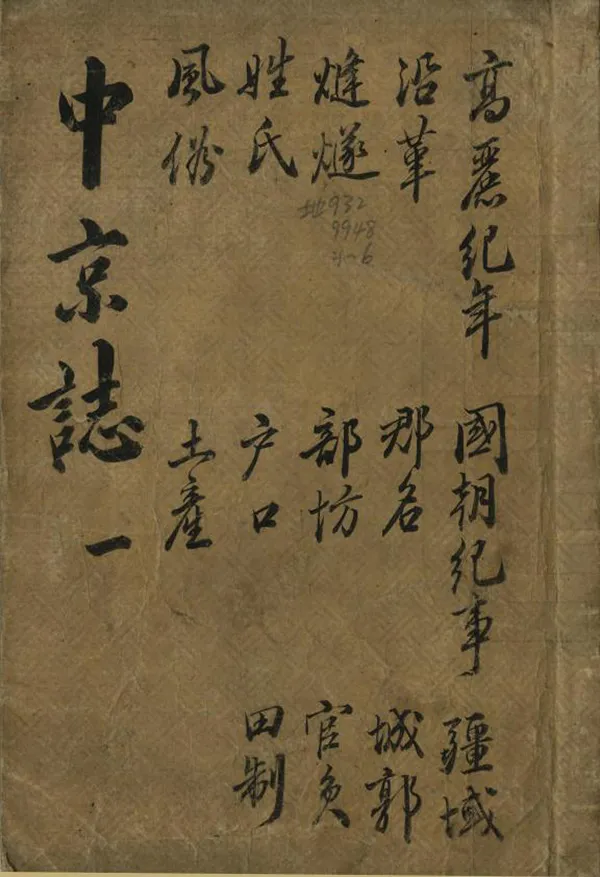 高麗紀年 國朝紀事 疆域
沿革 郡名 城郭
熢燧 部坊 官員
姓氏 户口 田制
風俗 土產
中京誌 一
地932
9948